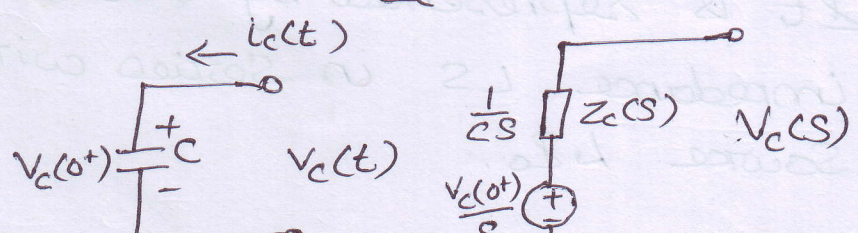 ← ic(t)
+
Vc(0⁺) C
-
Vc(t)
1/CS Zc(S)
Vc(S)
Vc(0⁺)/S +